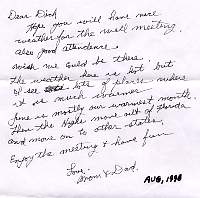 Dear Dick
Hope you will have nice
weather for the wall meeting.
also good attendance.
wish we could be there.
The weather here is hot but
I see lots of places where
it is much warmer.
June is mostly our warmest month
then the highs move out of Florida
and move on to other states.
Enjoy the meeting & have fun
Love,
Mom & Dad.
AUG, 1998